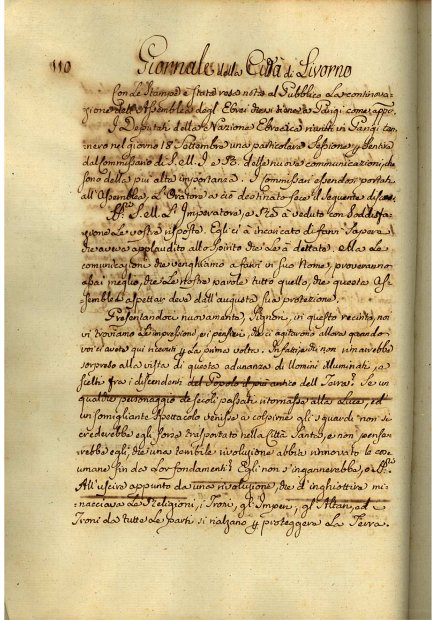 110 Giornale della Città di Livorno
Con le Stampe è stata resa nota al Pubblico la continova-
zione dell'Assemblea degl'Ebrei che si tiene a Parigi come appo.
I Deputati della Nazione Ebraica riuniti in Parigi ten-
nero nel giorno 18 Settembre una particolare Sessione, p sentire
dal Commissario di S. M. I. e R. delle nuove comunicazioni, che
sono della più alta importanza. I Commissari essendosi portati
all'Assemblea, l'Oratore a ciò destinato fece il seguente discorso
S. M. l'Imperatore, e Re à veduto con soddisfa-
zione le vostre risposte. Egli ci à incaricato di farvi sapere
che aveva applaudito allo spirito che le à dettate. Ma le
comunicazioni che venghiamo a farvi in suo Nome, proveranno
assai meglio, che le nostre parole tutto quello, che questa As-
semblea aspettar deve dall'augusta sua protezione.
Presentandoci nuovamente, Signori, in questo recinto, noi
vi troviamo le impressioni, e i pensieri, che ci agitarono allora quando
voi ci avete qui ricevuti p la prima volta. Infatti chi non rimarrebbe
sorpreso alla vista di questa adunanza di Uomini illuminati,
scelti fra i discendenti del Popolo il più antico della Terra? Se un
qualche personaggio de secoli passati ritornasse alla luce, ed
un somigliante spettacolo venisse a colpirne gli sguardi non si
crederebbe egli forse trasportato nella Città Santa, e non pense-
rebbe egli, che una terribile rivoluzione abbia rinnovato le cose
umane fin da lor fondamenti? Egli non s'ingannerebbe, o
All'uscire appunto da una rivoluzione, che d'inghiottire mi-
nacciava le Religioni, i Troni, gl'Imperi, gli Altari, ed
Troni da tutte le parti si rialzano p proteggere la Terra.